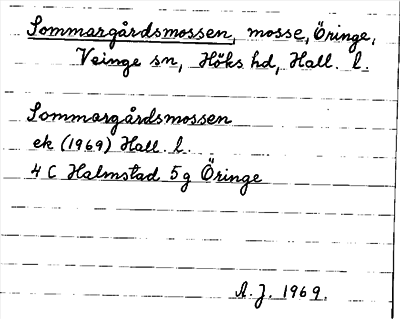 Sommargårdsmossen, mosse, Öringe,
Veinge sn, Höks hd, Hall. l.
Sommargårdsmossen
ek (1969) Hall. l.
4 C Halmstad 5 g Öringe
A. J. 1969.